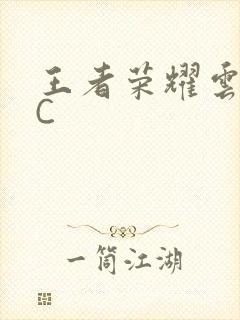 王者荣耀雲
C
一筒江湖